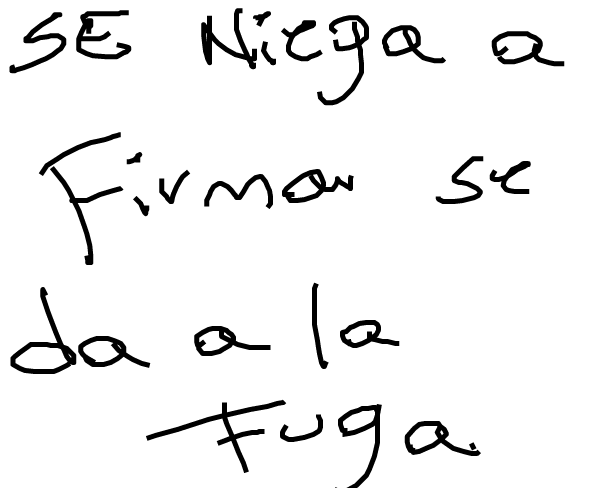 SE Niega a
Firmar se
da a la
Fuga.